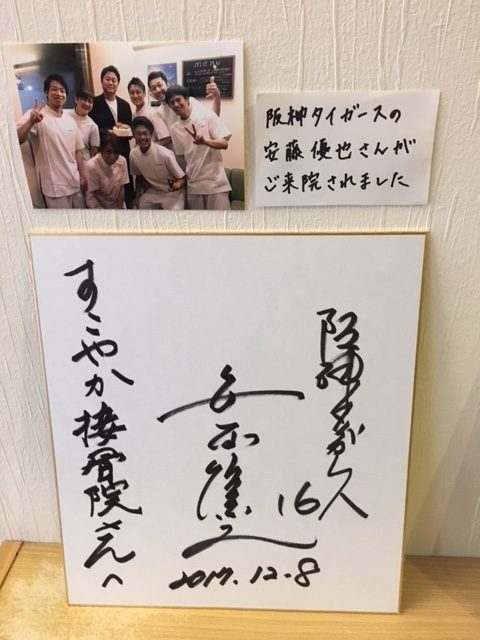 menu
阪神タイガースの
安藤優也さんが
ご来院されました
阪神タイガース
16
安藤優也
2017.12.8
すこやか接骨院さんへ